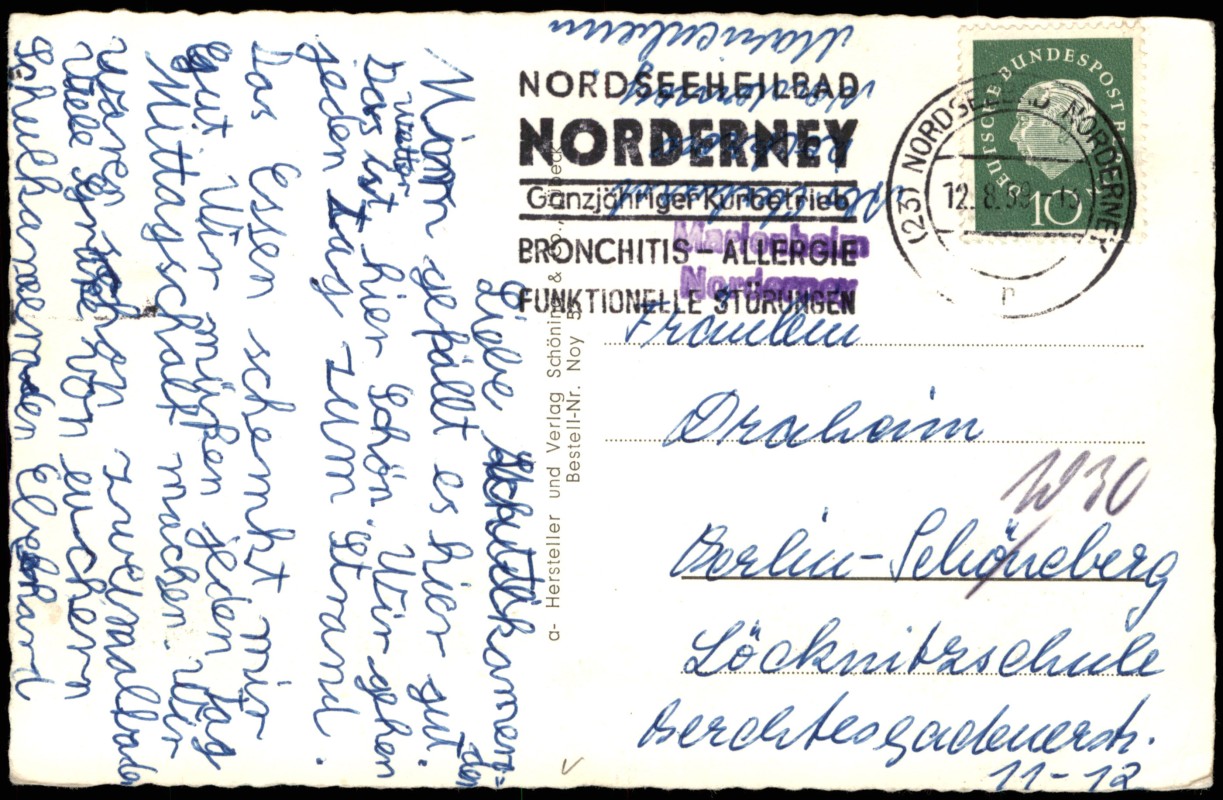 NORDSEEHEILBAD
NORDERNEY
Ganzjähriger Kurbetrieb
BRONCHITIS – ALLERGIE
FUNKTIONELLE STÖRUNGEN
(23) NORDSEEBAD NORDERNEY
12.8.59
n
DEUTSCHE BUNDESPOST
10
Marienheim
Norderney
Marienheim
Norderney
Fräulein
Draheim
W 30
Berlin-Schöneberg
Löcknitzschule
Berchtesgadenerstr.
11-12
a- Hersteller und Verlag Schöning & Co., Lübeck
Bestell-Nr. Noy 5
Liebe
den
gefällt es hier gut.
wetter
Das ist hier schön. Wir gehen
jeden Tag zum Strand.
Das Essen schemkt mir
gut. Wir müßen jeden Tag
Mittagschalf machen. Wir
waren schon zweimalbaden
Viele Grüße von euchern